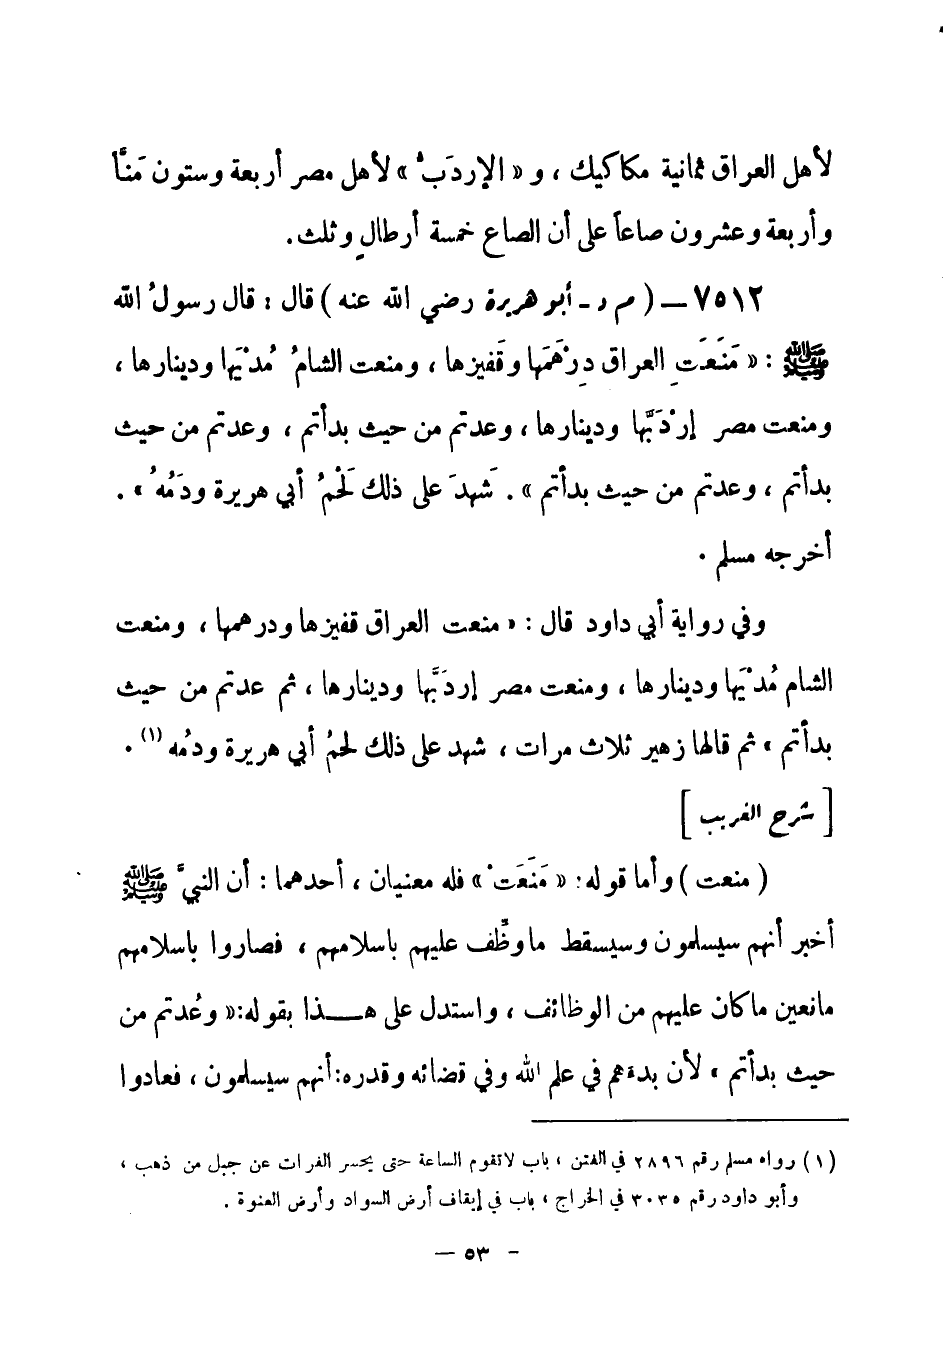 لأهل العراق ثمانية مكاكيك ، و « الإردَبُّ » لأهل مصر أربعة وستون مَنًّا
وأربعة وعشرون صاعاً على أن الصاع خمسة أرطالٍ وثلث.
٧٥١٢ – ( م د - أبو هريرة رضي الله عنه ) قال : قال رسولُ الله
ﷺ : « مَنَعَتِ العراق دِرْهَمَها وقَفيزها ، ومنعت الشامُ مُدْيَها ودينارها ،
ومنعت مصر إرْدَبَّها ودينارها ، وعدتم من حيث بدأتم ، وعدتم من حيث
بدأتم ، وعدتم من حيث بدأتم » . شَهدَ على ذلك لَحْمُ أبي هريرة ودَمُهُ » .
أخرجه مسلم .
وفي رواية أبي داود قال : « منعت العراق قفيزها ودرهمها ، ومنعت
الشام مُدْيَها ودينارها ، ومنعت مصر إردَبَّها ودينارها ، ثم عدتم من حيث
بدأتم » ثم قالها زهير ثلاث مرات ، شهد على ذلك لحمُ أبي هريرة ودمُه (١) .
[ شرح الغريب ]
( منعت ) وأما قوله: « مَنَعَتْ » فله معنيان ، أحدهما : أن النبيَّ ﷺ
أخبر أنهم سيسلمون وسيسقط ماوظِّف عليهم باسلامهم ، فصاروا باسلامهم
مانعين ماكان عليهم من الوظائف ، واستدل على هـــذا بقوله:« وعُدتم من
حيث بدأتم » لأن بدءهم في علم الله وفي قضائه وقدره:أنهم سيسلمون ، فعادوا
(١) رواه مسلم رقم ٢٨٩٦ في الفتن ، باب لاتقوم الساعة حتى يحسر الفرات عن جبل من ذهب ،
وأبو داود رقم ٣٠٣٥ في الخراج ، باب في إيقاف أرض السواد وأرض العنوة .
- ٥٣ –